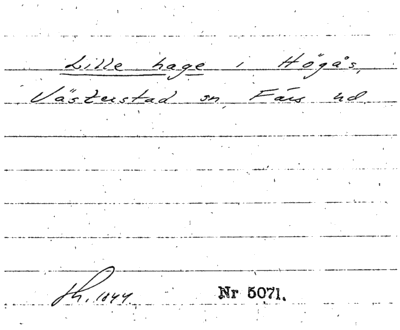 Lille hage i Högås,
Västerstad sn Färs hd
1844 Nr 5071.